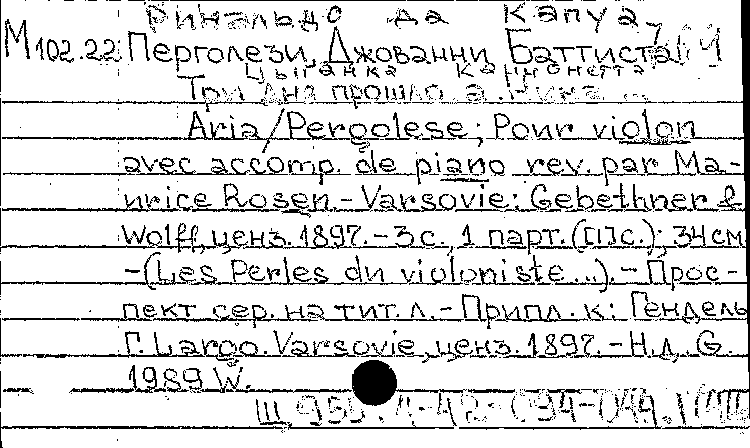 Ринальдо да Капуа,
М102.22 Перголези, Джованни Баттиста
Цыганка Канцонетта
Три дня прошло, а Нина ...
Aria / Pergolese; Pour violon
avec accomp. de piano rev. par Ma-
urice Rosen. - Varsovie: Gebethner &
Wolff, ценз. 1897. - 3 с., 1 парт. ([1] с.); 34 см
- (Les Perles du violoniste ...). - Прос-
пект сер. на тит. л. - Прилл. к: Гендель
Г. Largo. Varsovie, ценз. 1897. - Н.д. G.
1989 W.
Щ 955.4-42